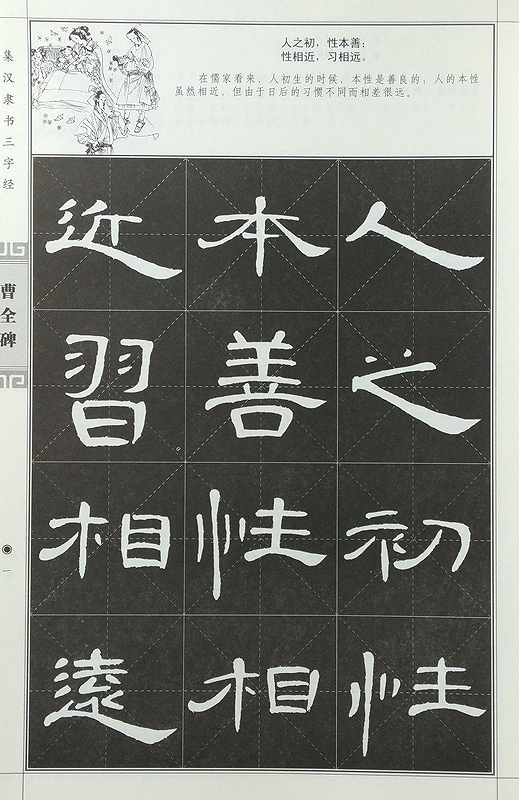 人之初，性本善；
性相近，习相远。
在儒家看来，人初生的时候，本性是善良的，人的本性
虽然相近，但由于日后的习惯不同而相差很远。
人之初性
本善性相
近習相遠
集汉隶书三字经
曹全碑
一